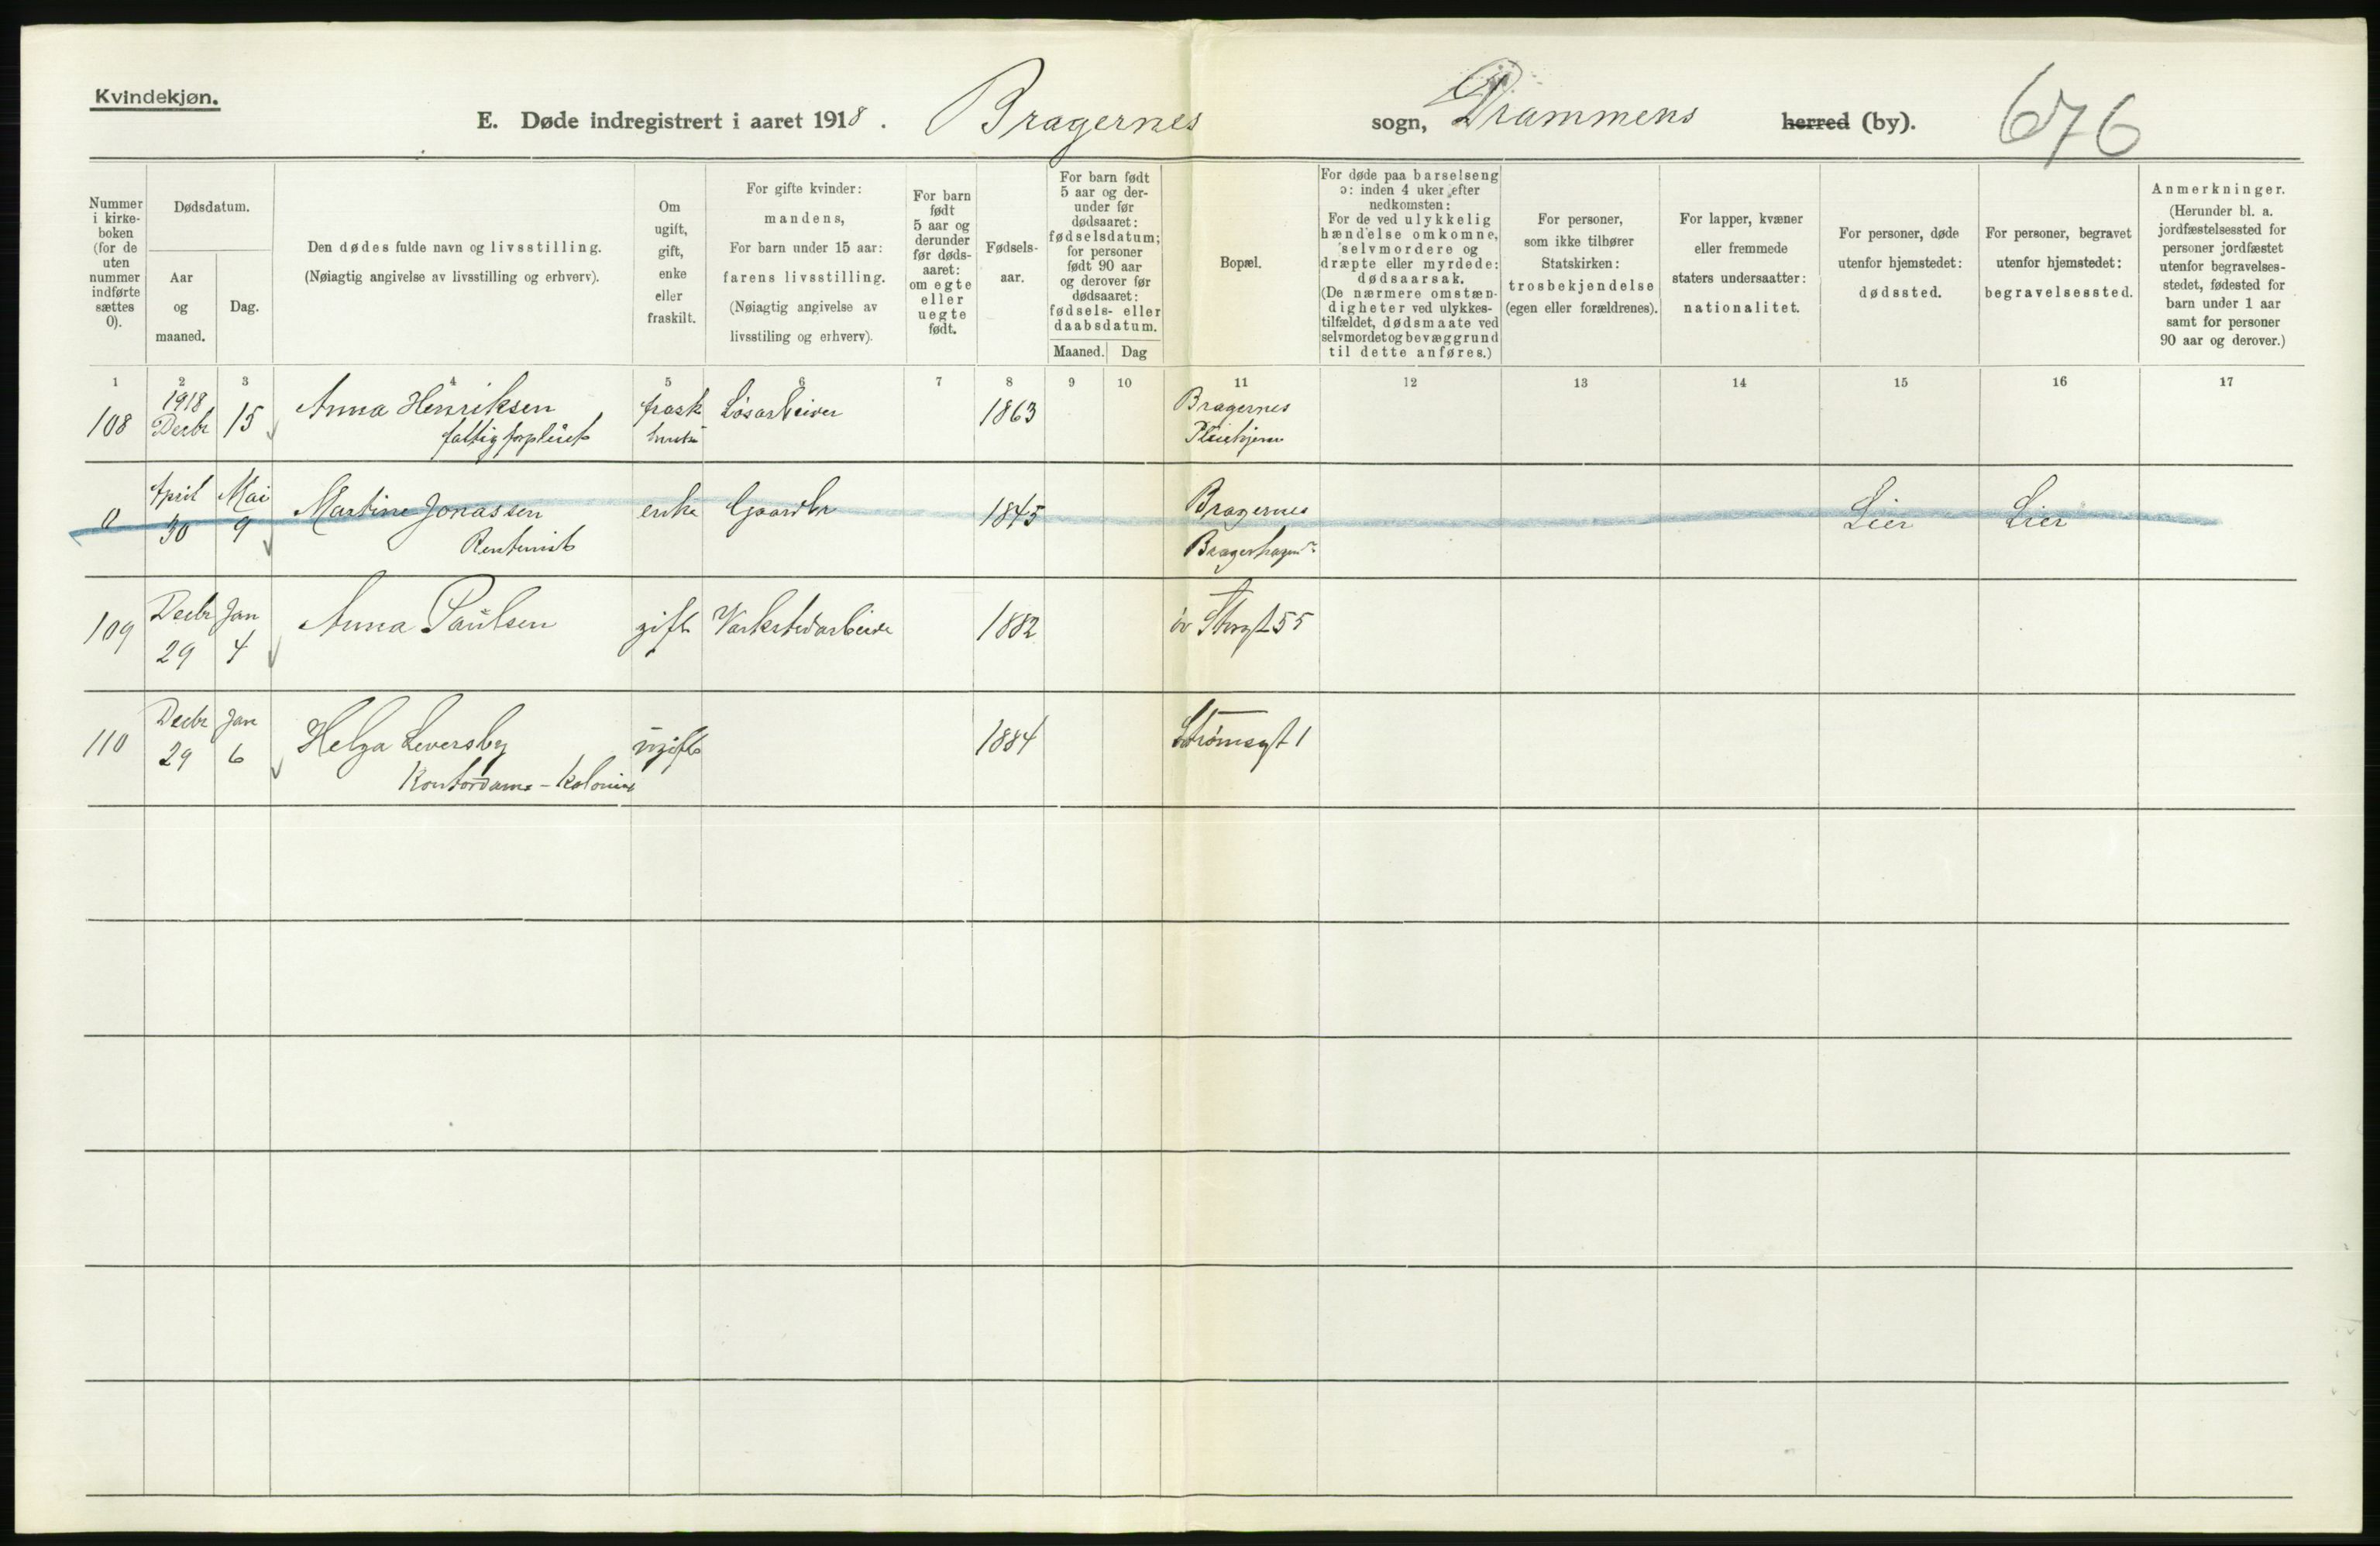 Kvindekjøn.
E. Døde indregistrert i aaret 1918. Bragernes sogn, Drammens herred (by). 676
Nummer i kirke- boken (for de uten nummer indførte sættes 0).
Dødsdatum.
Aar og maaned.
Dag.
Den dødes fulde navn og livsstilling.
(Nøiagtig angivelse av livsstilling og erhverv).
Om ugift, gift, enke eller fraskilt.
For gifte kvinder:
mandens,
For barn under 15 aar:
farens livsstilling.
(Nøiagtig angivelse av
livsstiling og erhverv).
For barn født 5 aar og derunder før døds- aaret: om egte eller uegte født.
Fødsels- aar.
For barn født
5 aar og der-
under før
dødsaaret:
fødselsdatum;
for personer
født 90 aar
og derover før
dødsaaret:
fødsels- eller
daabsdatum.
Maaned. Dag
Bopæl.
For døde paa barselseng
ɔ: inden 4 uker efter
nedkomsten:
For de ved ulykkelig
hændelse omkomne,
selvmordere og
dræpte eller myrdede:
dødsaarsak.
(De nærmere omstæn-
digheter ved ulykkes-
tilfældet, dødsmaate ved
selvmordet og bevæggrund
til dette anføres.)
For personer,
som ikke tilhører
Statskirken:
trosbekjendelse
(egen eller forældrenes).
For lapper, kvæner
eller fremmede
staters undersaatter:
nationalitet.
For personer, døde
utenfor hjemstedet:
dødssted.
For personer, begravet
utenfor hjemstedet:
begravelsessted.
Anmerkninger.
(Herunder bl. a.
jordfæstelsessted for
personer jordfæstet
utenfor begravelses-
stedet, fødested for
barn under 1 aar
samt for personer
90 aar og derover.)
1 2 3 4 5 6 7 8 9 10 11 12 13 14 15 16 17
108 1918 Decbr 15 Anna Henriksen frask Løsarbeider 1863 Bragernes
fattigforpleiet hustru Pleiehjem
0 April 30 Mai 9 Martine Jonassen enke Gaardbr 1845 Bragernes Lier Lier
Rentenist Bragerhagen
109 Decbr 29 Jan 4 Anna Paulsen gift Værkstedarbeide 1882 øv Storgt 55
110 Decbr 29 Jan 6 Helga Leversby ugift 1884 Strømsgt 1
Kontordame - Kolonial